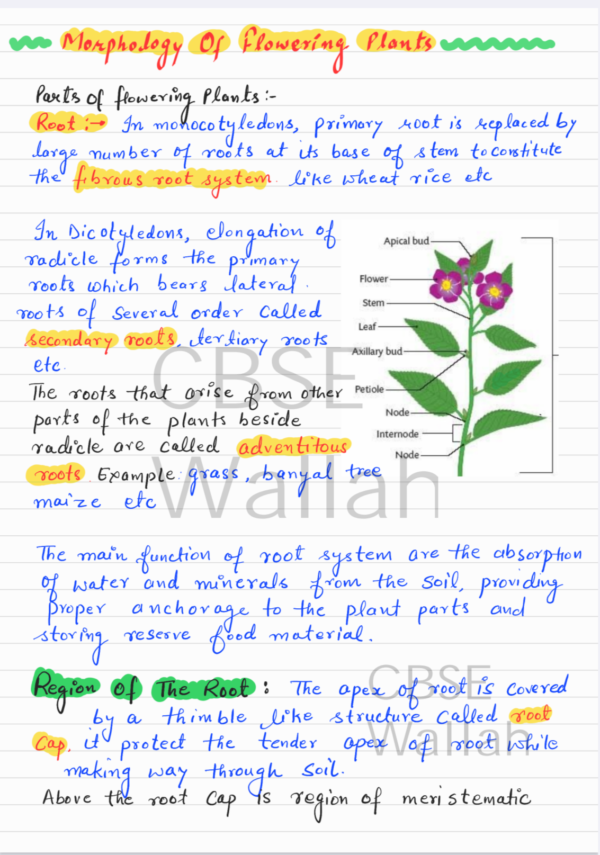 Morphology Of Flowering Plants
Parts of flowering Plants:-
Root :→ In monocotyledons, primary root is replaced by
large number of roots at its base of stem to constitute
the fibrous root system. like wheat rice etc
In Dicotyledons, elongation of
radicle forms the primary
roots which bears lateral.
roots of several order called
secondary roots, tertiary roots
etc.
The roots that arise from other
parts of the plants beside
radicle are called adventitous
roots. Example: grass, banyal tree
maize etc
Apical bud
Flower
Stem
Leaf
Axillary bud
Petiole
Node
Internode
Node
CBSE
Wallah
The main function of root system are the absorption
of water and minerals from the soil, providing
proper anchorage to the plant parts and
storing reserve food material.
Region Of The Root : The apex of root is covered
by a thimble like structure called root
cap, it protect the tender apex of root while
making way through soil.
Above the root cap is region of meristematic
CBSE
Wallah